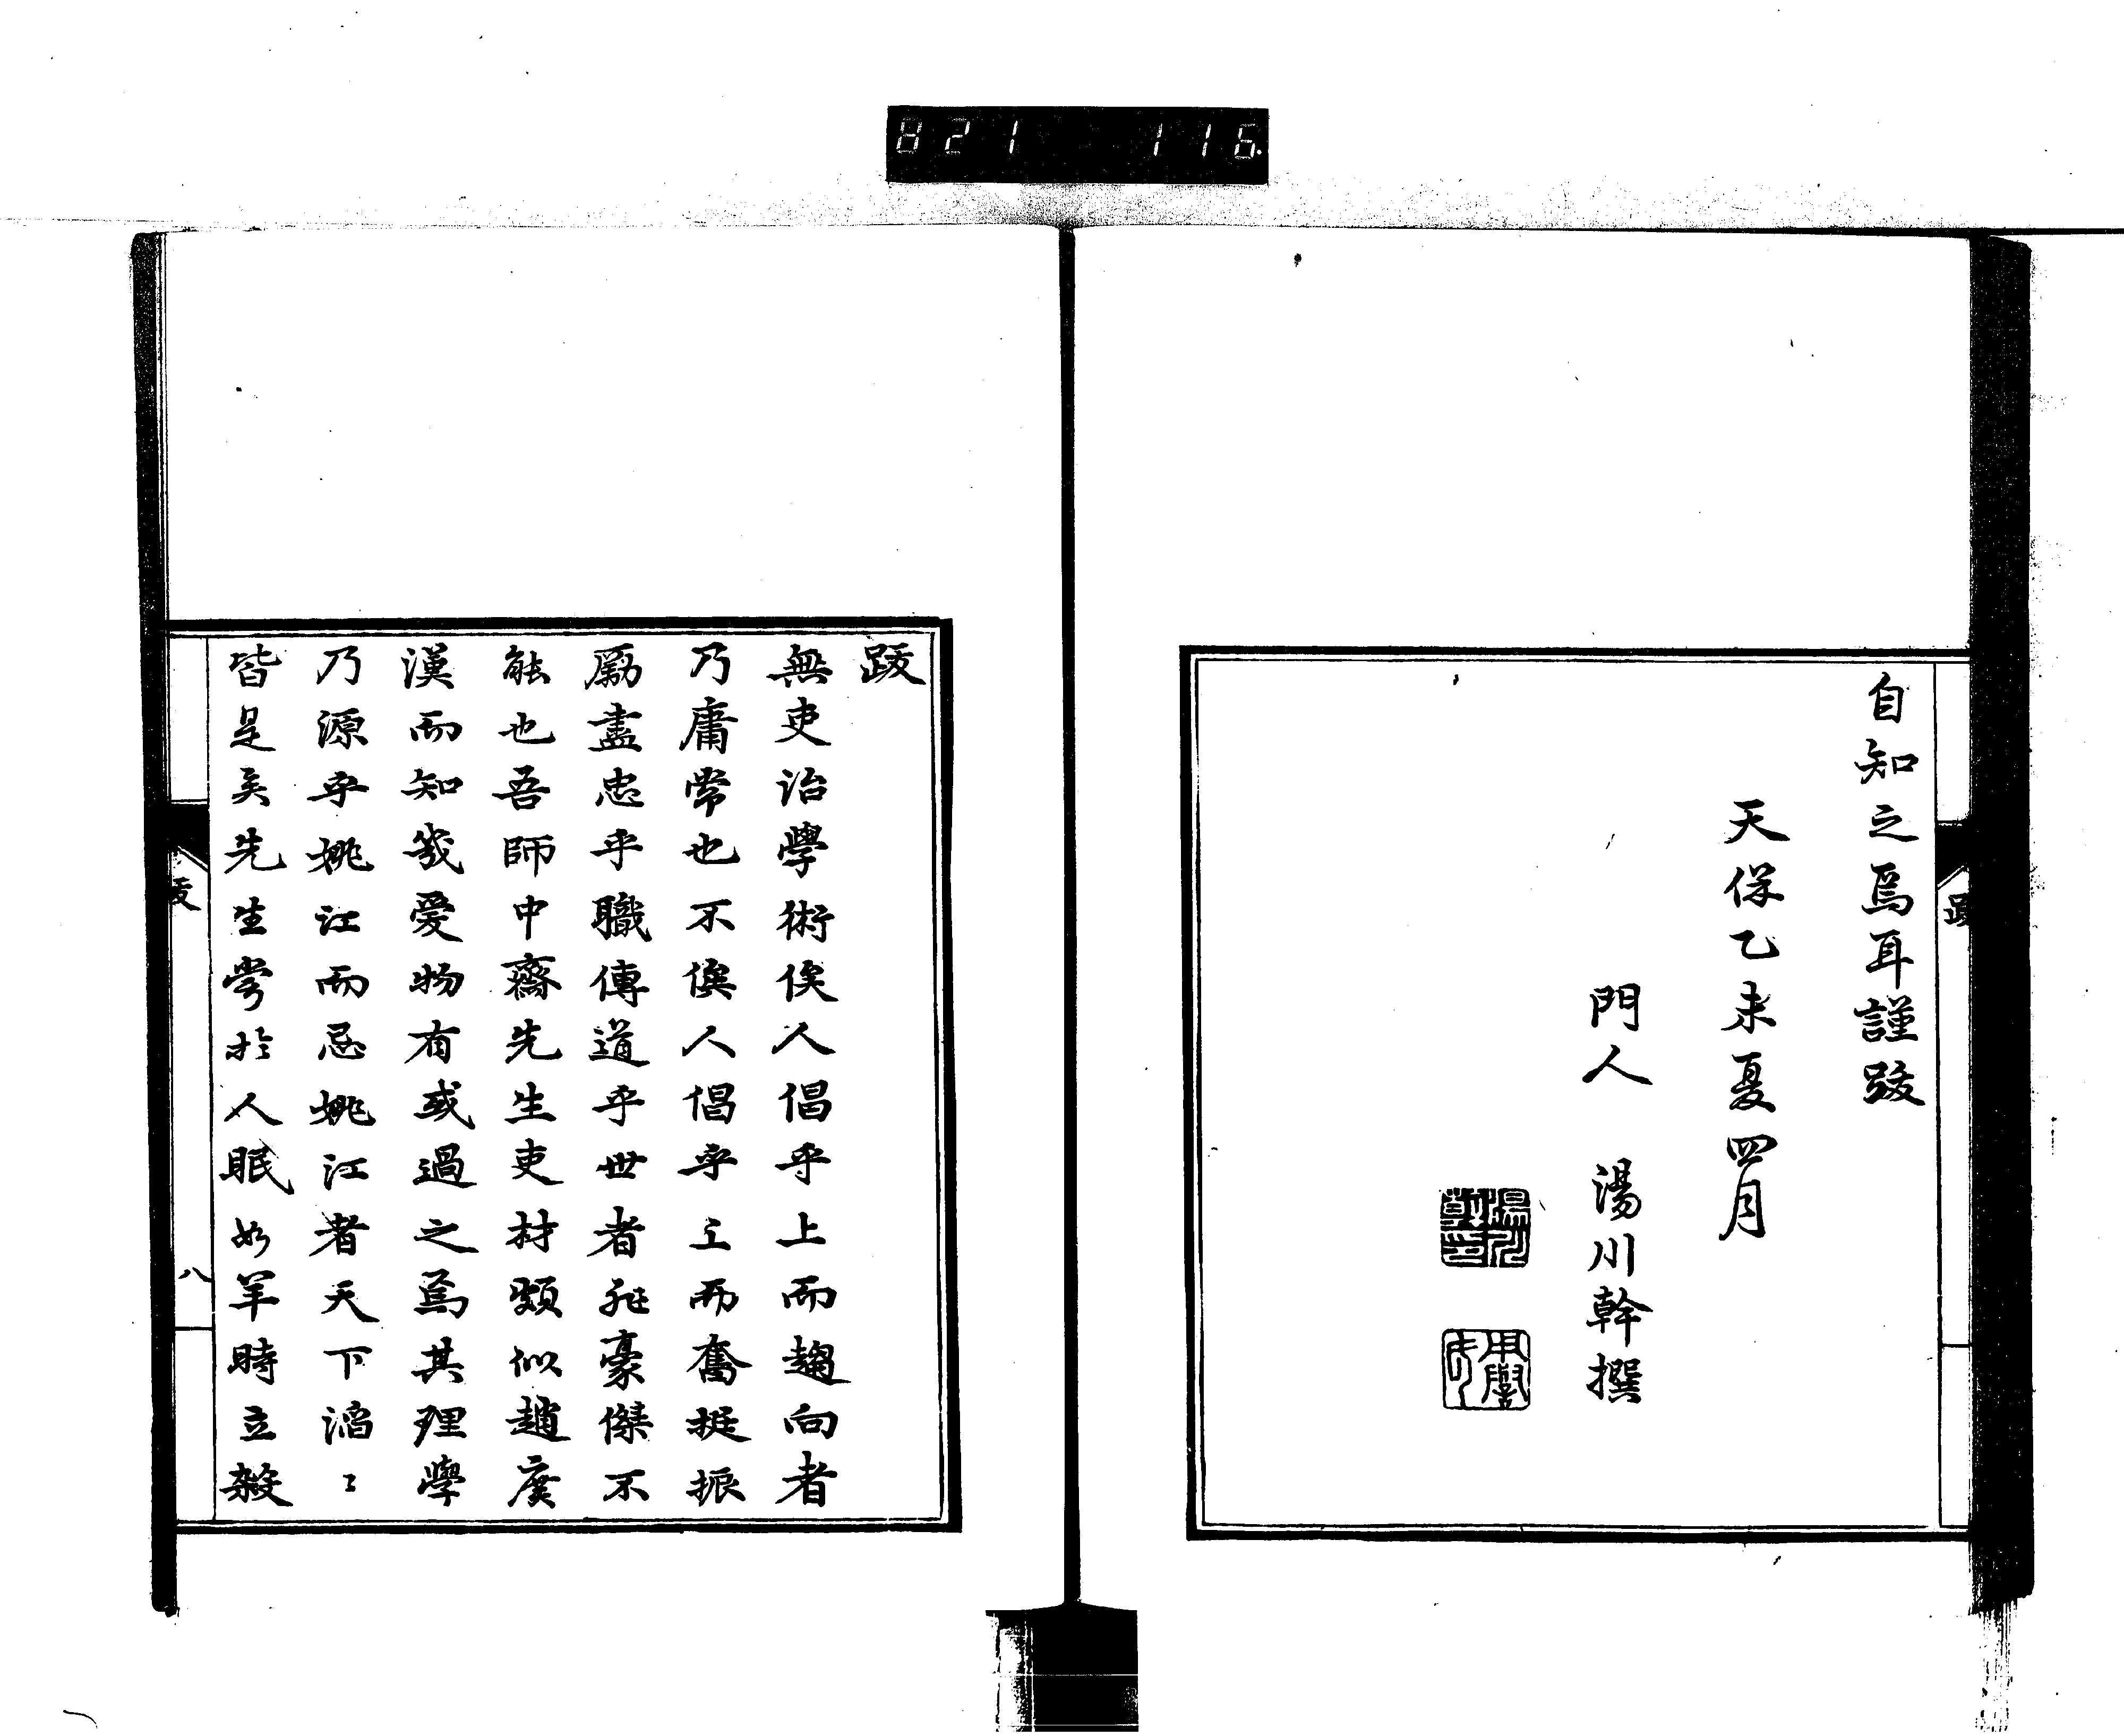 821 116
自知之焉耳謹跋
天保乙未夏四月
門人 湯川幹撰
跋
無吏治學術俟人倡乎上而趨向者
乃庸常也不俟人倡乎上而奮挺振
勵盡忠乎職傳道乎世者非豪傑不
能也吾師中齋先生吏材頗似趙廣
漢而知幾愛物有或過之焉其理學
乃源乎姚江而忌姚江者天下滔〻
皆是矣先生嘗於人眠如羊時立殺
跋
八